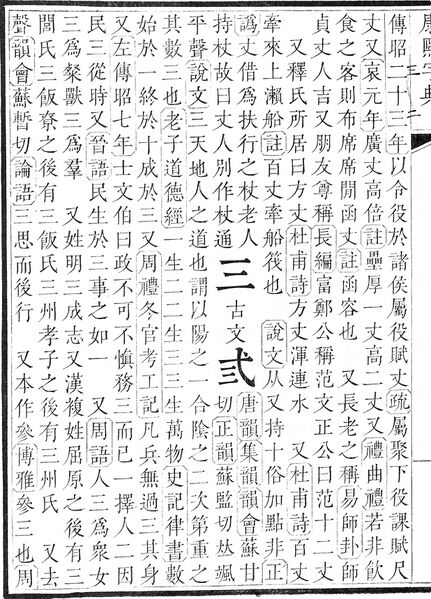 康熙字典
傳昭二十三年以令役於諸侯屬役賦丈疏屬聚下役課賦尺
丈又哀元年廣丈高倍註壘厚一丈高二丈又禮曲禮若非飲
食之客則布席席閒函丈註函容也　又長老之稱易師卦師
貞丈人吉又朋友尊稱長編富鄭公稱范文正公曰范十二丈
又釋氏所居曰方丈杜甫詩方丈渾連水　又杜甫詩百丈
牽來上瀨船註百丈牽船筏也　說文从又持十俗加點非正
譌丈借爲扶行之杖老人
持杖故曰丈人別作杖通
三古文弎
唐韻集韻韻會蘇甘
切正韻蘇監切𠀤颯
平聲說文三天地人之道也謂以陽之一合陰之二次第重之
其數三也老子道德經一生二二生三三生萬物史記律書數
始於一終於十成於三又周禮冬官考工記凡兵無過三其身
又左傳昭七年士文伯曰政不可不愼務三而已一擇人二因
民三從時又晉語民生於三事之如一　又周語人三爲衆女
三爲粲獸三爲羣　又姓明三成志又漢複姓屈原之後有三
閭氏三飯尞之後有三飯氏三州孝子之後有三州氏　又去
聲韻會蘇暫切論語三思而後行　又本作參博雅參三也周